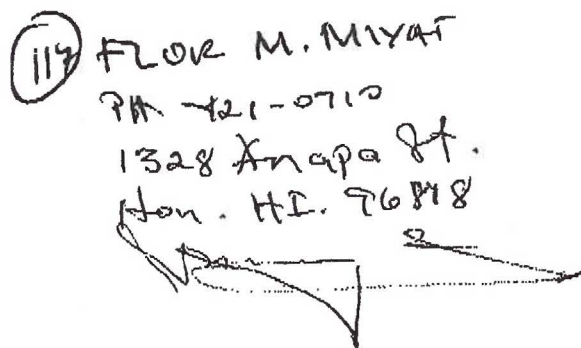 117 FLOR M. MIYAT
PH 421-0710
1328 Anapa St.
Hon. HI. 96818